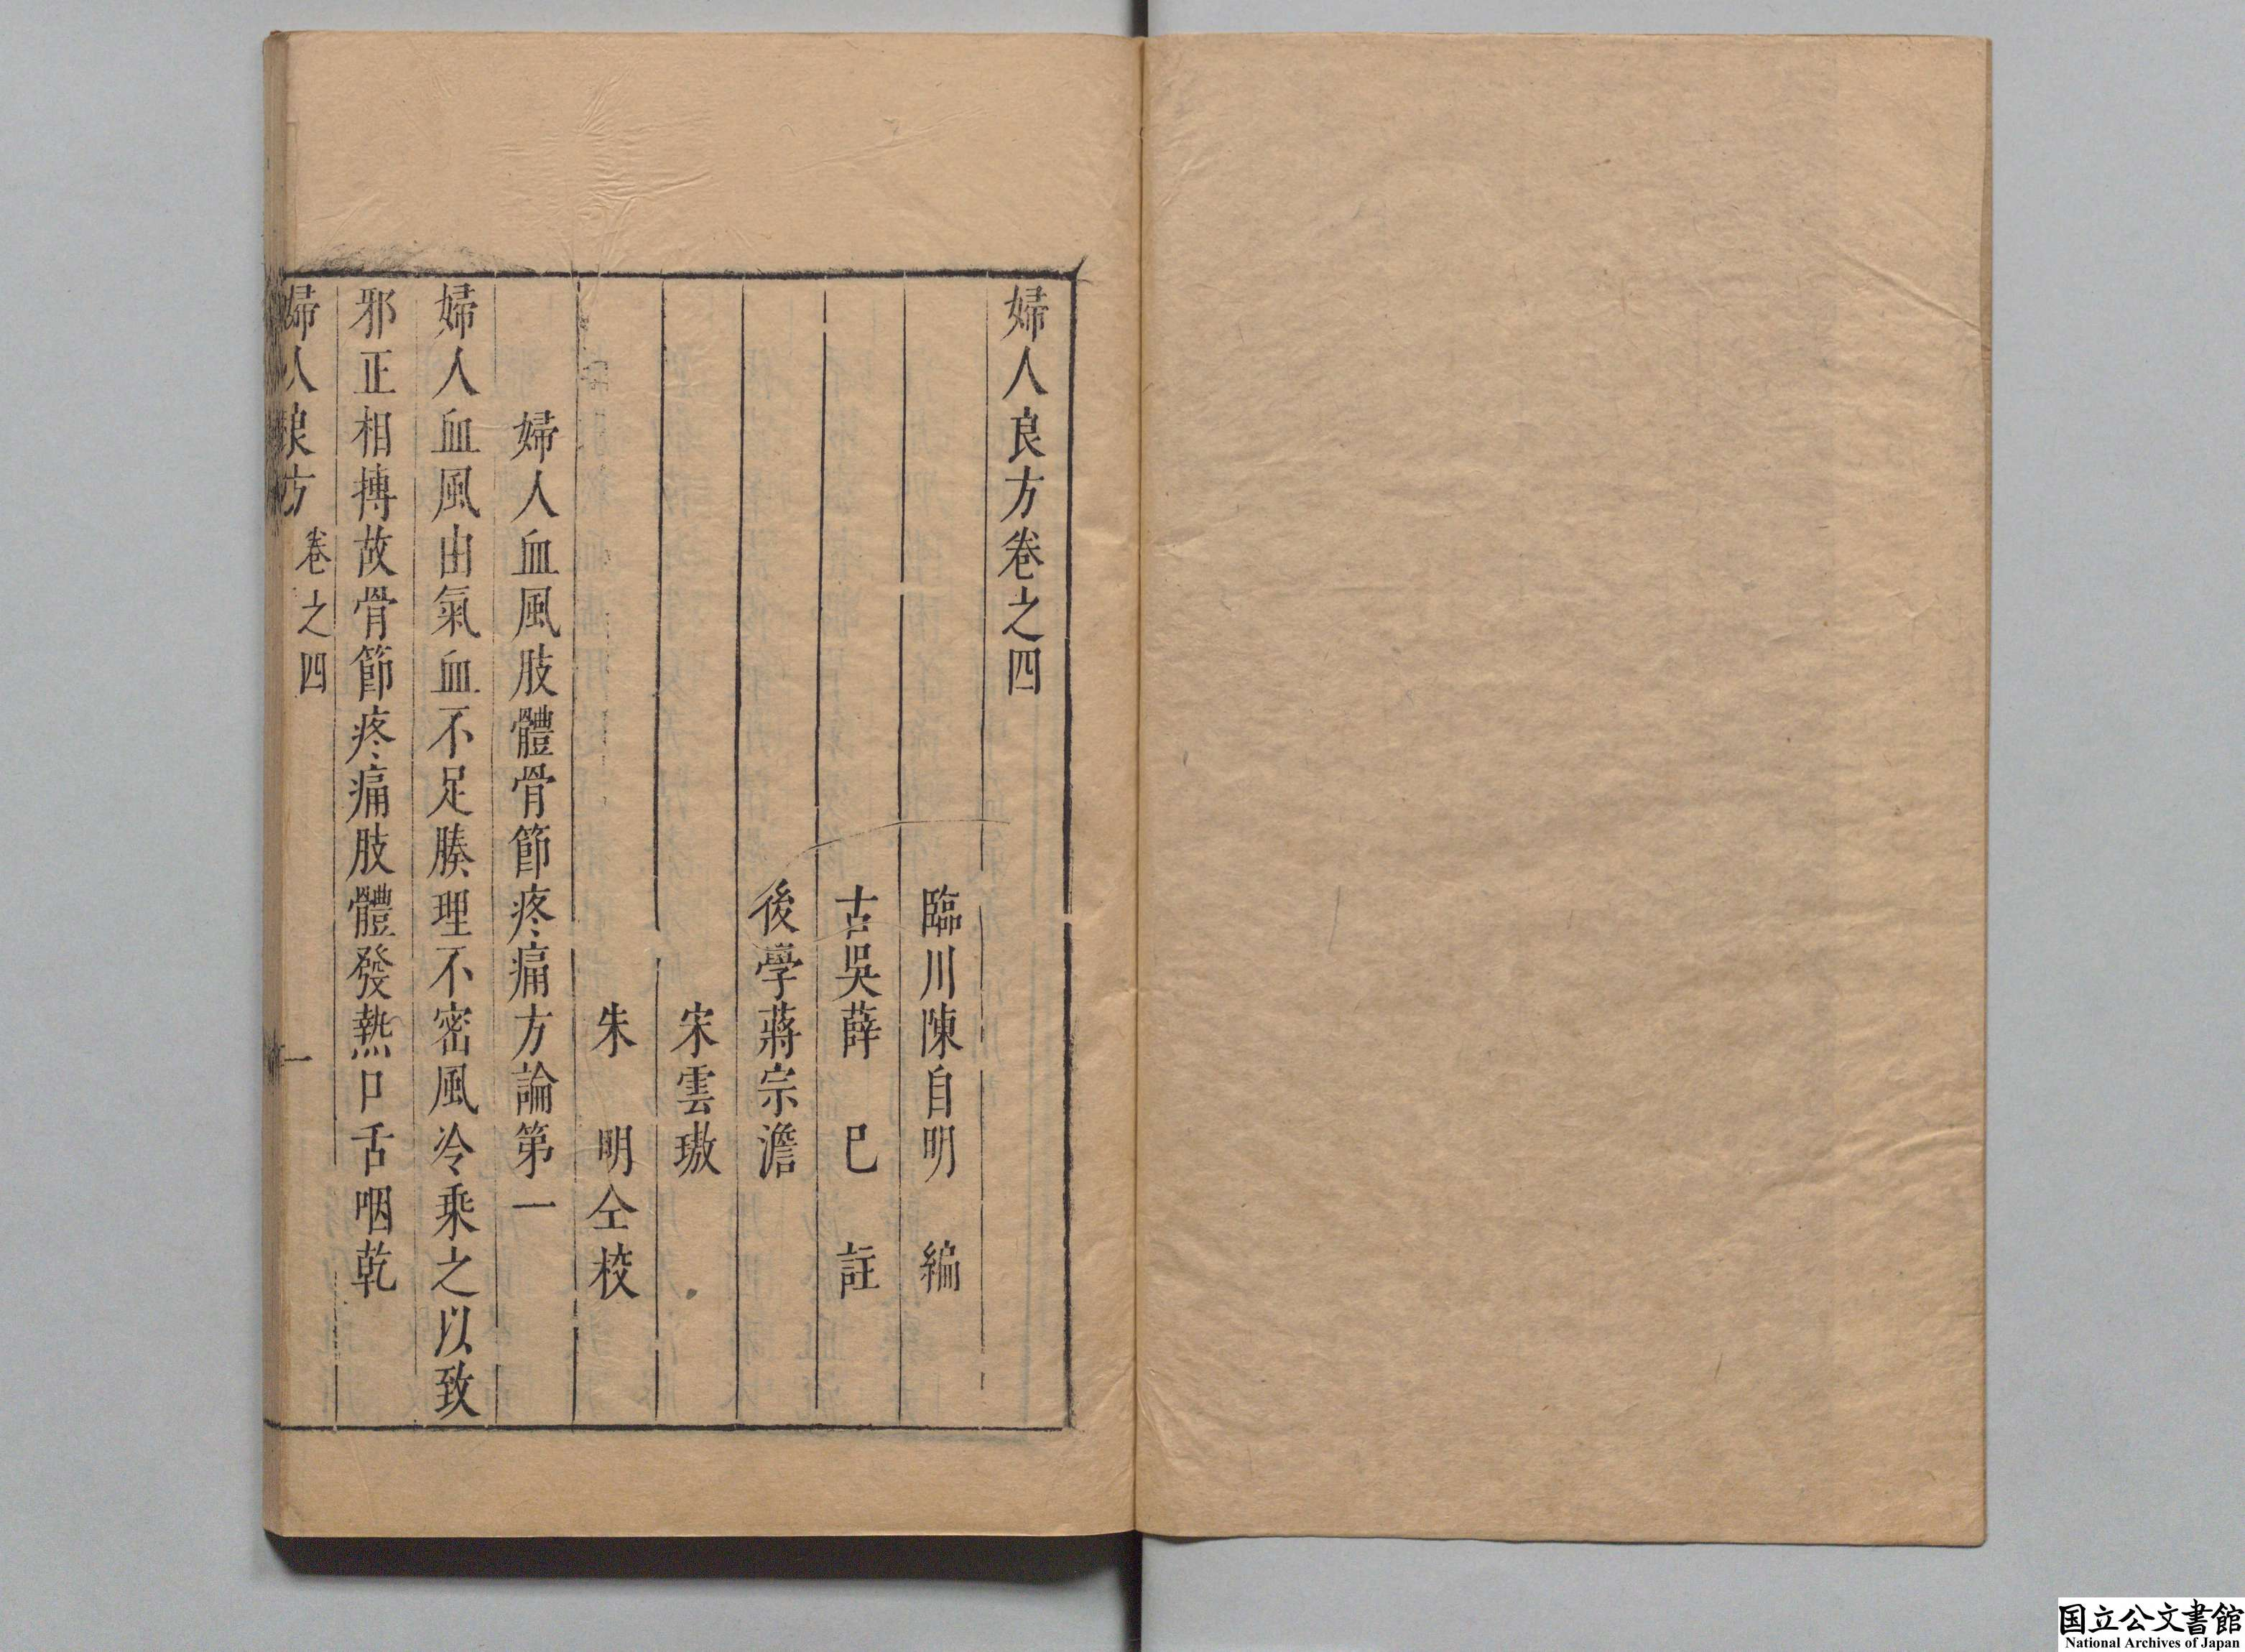 婦人良方卷之四
臨川陳自明　編
古吳薛　已　註
後學蔣宗澹
宋雲璈
朱　明仝校
婦人血風肢體骨節疼痛方論第一
婦人血風由氣血不足腠理不密風冷乘之以致
邪正相搏故骨節疼痛肢體發熱口舌咽乾
婦人良方　卷之四　一
国立公文書館
National Archives of Japan